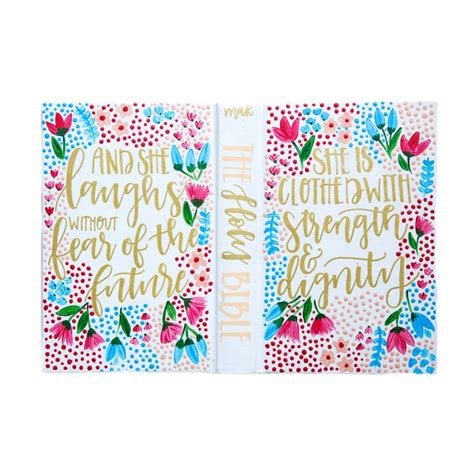 AND SHE
laughs
WITHOUT
fear of the
future
mak
THE Holy BIBLE
SHE IS
CLOTHED WITH
strength
&
dignity